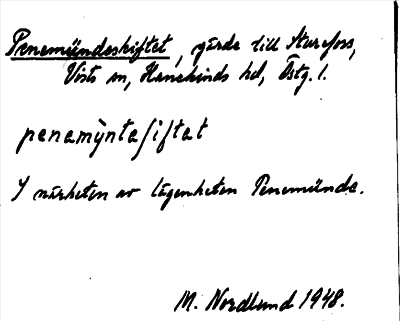 Penemündeskiftet, gärde till Sturefors,
Vists sn, Hanekinds hd, Östg. l.
penamỳntaʃiftat
I närheten av lägenheten Penemünde.
M. Nordlund 1948.